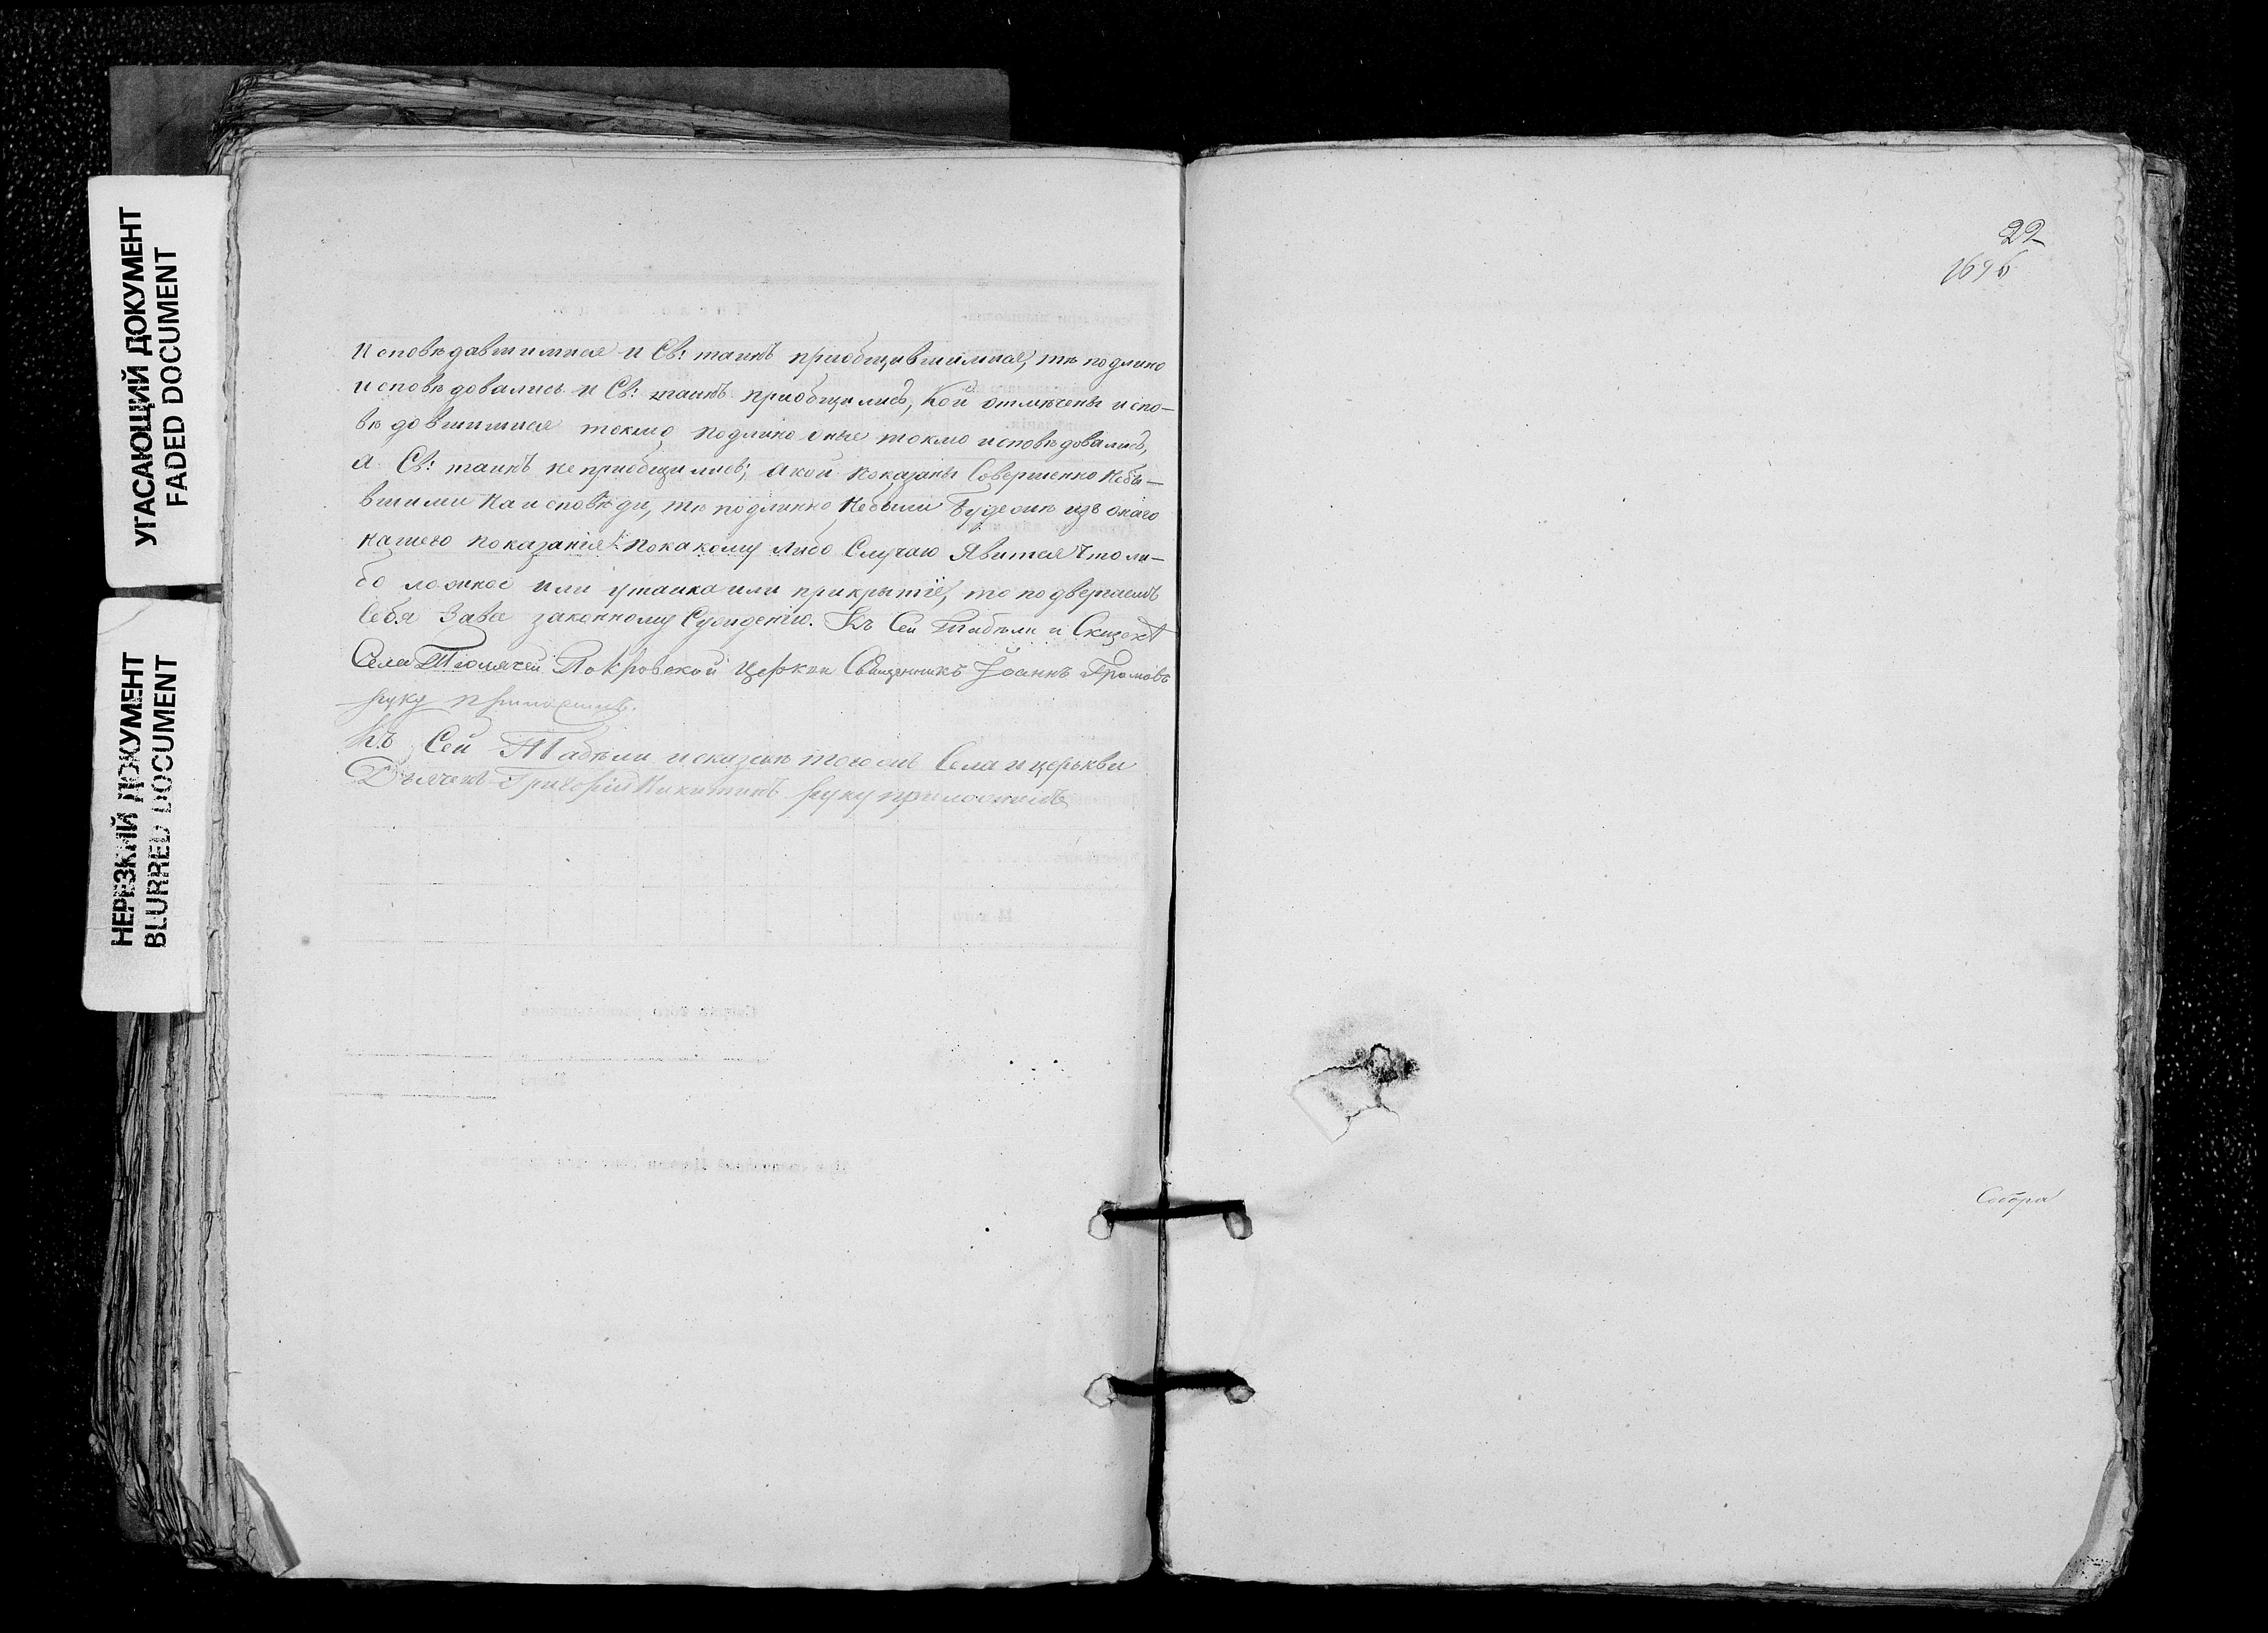 УГАСАЮЩИЙ ДОКУМЕНТ
FADED DOCUMENT
НЕРЕЗКИЙ ДОКУМЕНТ
BLURRED DOCUMENT
исповѣдавшимися и Св: таинъ приобщившимися, тѣ подлино
исповѣдовались и Св: таинъ приобщились, кои отмѣчены испо-
вѣдовшимися токмо подлино оные токмо исповѣдовались,
а Св: таинъ неприобщились; а кои показаны совершенно небы-
вшими на исповѣди, тѣ подлинно небыли Буде онѣ изъ онаго
нашего показанія покакому либо случаю явится что ли-
бо ложное или утайка или прикрытіе, то подвергаемъ
себя за все законному сужденію. Къ сей Табели и Сказкѣ
Села Тюлячей Покровской церкви Священникъ Іоаннъ Громовъ
руку приложилъ.
Къ Сей Табѣли и сказки того жъ Села и церькви
Дьячекъ Григорій Никитинъ руку приложилъ
22
Собора